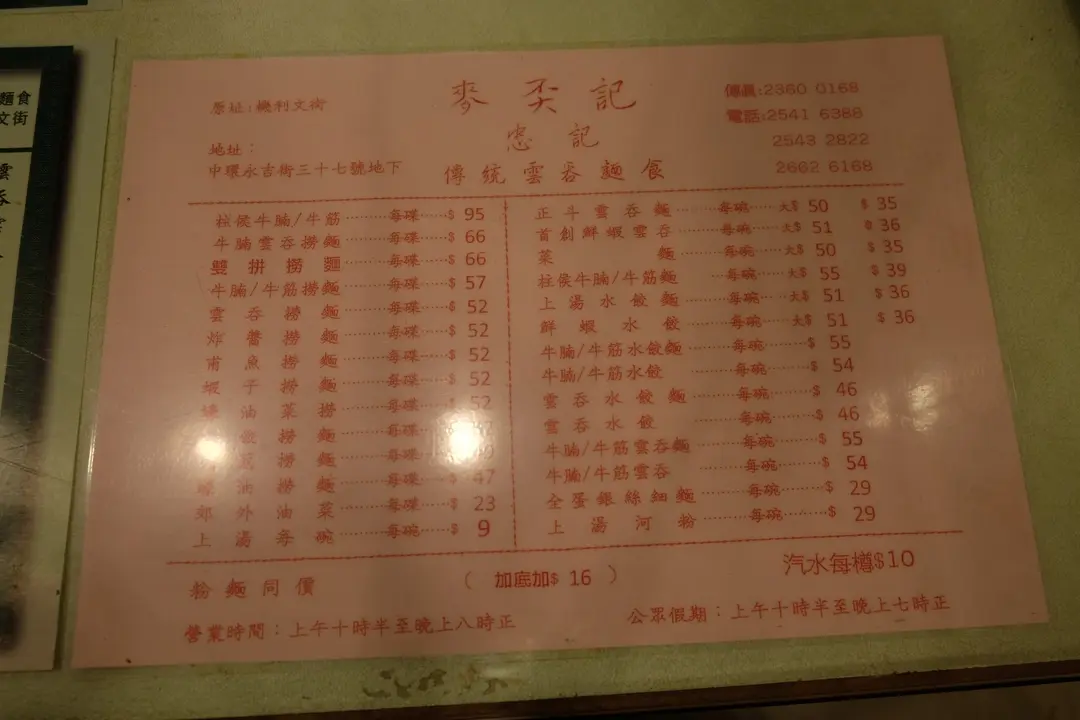 麵食
文街
雲
吞
麥奀記
忠記
傳統雲吞麵食
原址:機利文街
地址:
中環永吉街三十七號地下
傳真:2360 0168
電話:2541 6388
2543 2822
2662 6168
柱侯牛腩/牛筋……每碟……$ 95
牛腩雲吞撈麵……每碟……$ 66
雙拼撈麵……每碟……$ 66
牛腩/牛筋撈麵……每碟……$ 57
雲吞撈麵……每碟……$ 52
炸醬撈麵……每碟……$ 52
甫魚撈麵……每碟……$ 52
蝦子撈麵……每碟……$ 52
蠔油菜撈……每碟……$ 52
餃撈麵……每碟
撈麵……每碟……$
蠔油撈麵……每碟……$ 47
郊外油菜……每碟……$ 23
上湯每碗……每碗……$ 9
正斗雲吞麵……每碗……大$ 50 $ 35
首創鮮蝦雲吞……每碗……大$ 51 $ 36
菜麵……每碗……大$ 50 $ 35
柱侯牛腩/牛筋麵……每碗……大$ 55 $ 39
上湯水餃麵……每碗……大$ 51 $ 36
鮮蝦水餃……每碗……大$ 51 $ 36
牛腩/牛筋水餃麵……每碗……$ 55
牛腩/牛筋水餃……每碗……$ 54
雲吞水餃麵……每碗……$ 46
雲吞水餃……每碗……$ 46
牛腩/牛筋雲吞麵……每碗……$ 55
牛腩/牛筋雲吞……每碗……$ 54
全蛋銀絲細麵……每碗……$ 29
上湯河粉……每碗……$ 29
粉麵同價
( 加底加$ 16 )
汽水每樽$10
營業時間:上午十時半至晚上八時正
公眾假期:上午十時半至晚上七時正